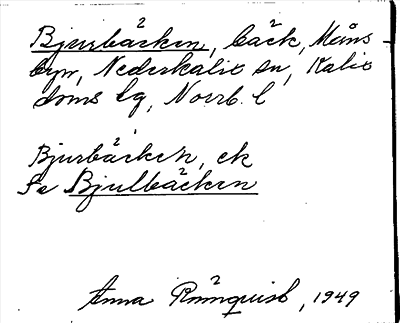 Bjurbäcken, bäck, Måns-
byn, Nederkalix sn, Kalix
doms lg, Norrb. l
Bjurbäcken, ek
Se Bjulbäcken
Anna Rönnquist, 1949